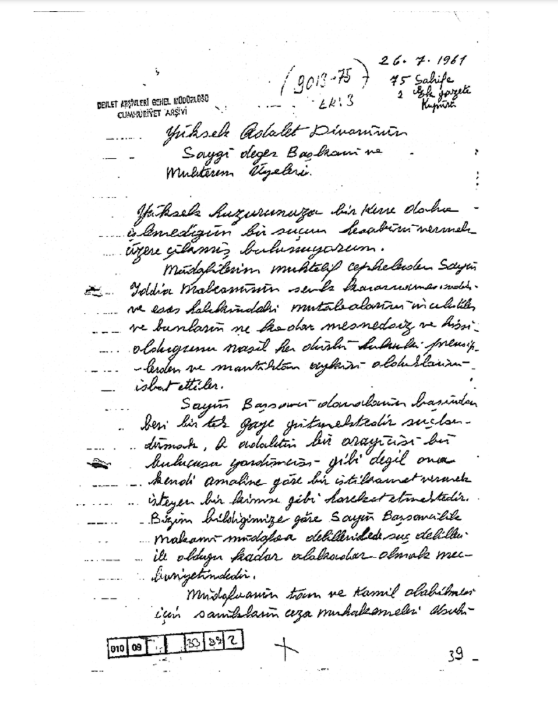 26.7.1961
(9013-75)
75 Sahife
Ek: 3
2 gazete
Kupürü
DEVLET ARŞİVLERİ GENEL MÜDÜRLÜĞÜ
CUMHURİYET ARŞİVİ
Yüksek Adalet Divanının
Saygı değer Başkanı ve
Muhterem Üyeleri.
Yüksek huzurunuza bir kere daha
işlemediğim bir suçun hesabını vermek
üzere çıkmış bulunuyorum.
Müdafilerim muhtelif cephelerden Sayın
İddia Makamının sevk kararnamesindeki
ve esas hakkındaki mütalealarını incelediler
ve bunların ne kadar mesnedsiz ve hissi
olduğunu nasıl her türlü hukuki prensip-
lerden ve mantıktan aykırı olduklarını
isbat ettiler.
Sayın Başsavcı davaların başından
beri bir tek gaye gütmektedir suçlan-
dırmak, O adaletin bir arayıcısı bir
bulucusu yardımcısı gibi değil ona
kendi amaline göre bir istikamet vermek
isteyen bir kimse gibi hareket etmektedir.
Bizim bildiğimize göre Sayın Başsavcılık
makamı müdafaa delilleride suç delilleri
ile olduğu kadar alakadar olmak mec-
buriyetindedir.
Müdafaanın tam ve kamil olabilmesi
için sanıkların ceza muhakemeleri
010 09 2
39